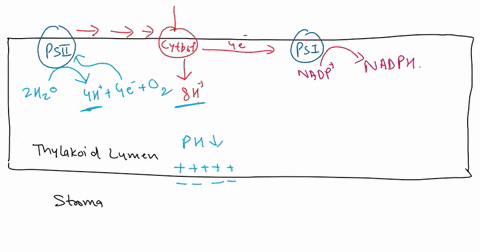 PSII Cytb6f 4e⁻ PSI
NADP⁺ NADPH.
2H₂O 4H⁺ + 4e⁻ + O₂ 8H⁺
PH↓
Thylakoid Lumen
+++++
Stroma